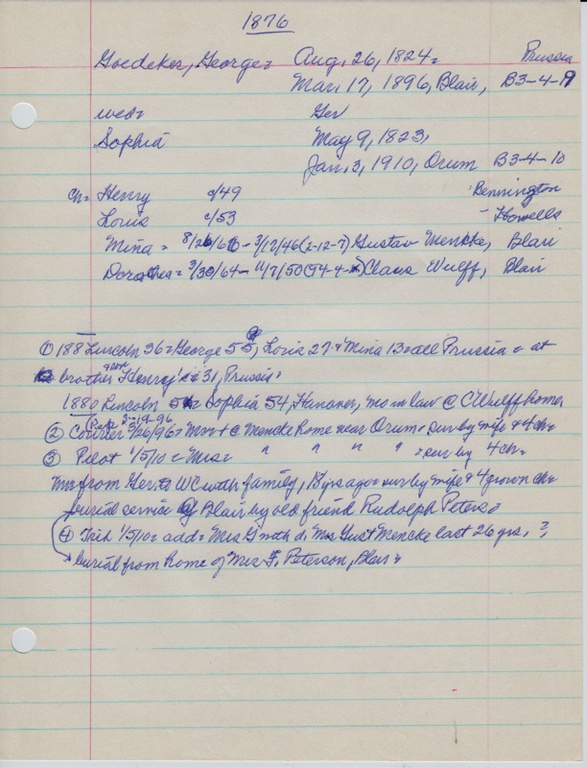 1876
Goedeker, George= Aug. 26, 1824= Prussia
Mar. 17, 1896, Blair, B3-4-9
wed= Ger
Sophia May 9, 1823,
Jan. 3, 1910, Orum B3-4-10
Ch= Henry c/49 Bennington
Louis c/53 - Howells
Mina = - 3/17/46 Gustav Mencke, Blair
Dorothea = 3/30/64 - 11/7/50 Claus Wulff, Blair
① 188 Lincoln 36= George 55, Louis 27 & Mina 13= all Prussia = at
brother Henry 31, Prussia=
1880 Lincoln Sophia 54, Hanover, mo in law @ C Wulff home
② Courier 3/26/96= Mr + @ Mencke home near Orum= sur by wife & 4 ch=
3-19-96
③ Pilot 1/5/10 = Mrs= " " " " = sur by 4 ch=
from Ger to WC with family, yrs ago= sur by wife & 4 grown ch=
burial service @ Blair by old friend Rudolph Peters=
④ Trib 1/5/10= add= Mrs G mth d: Mrs Gust Mencke last 26 yrs. ?
burial from home of Mrs F. Peterson, Blair=